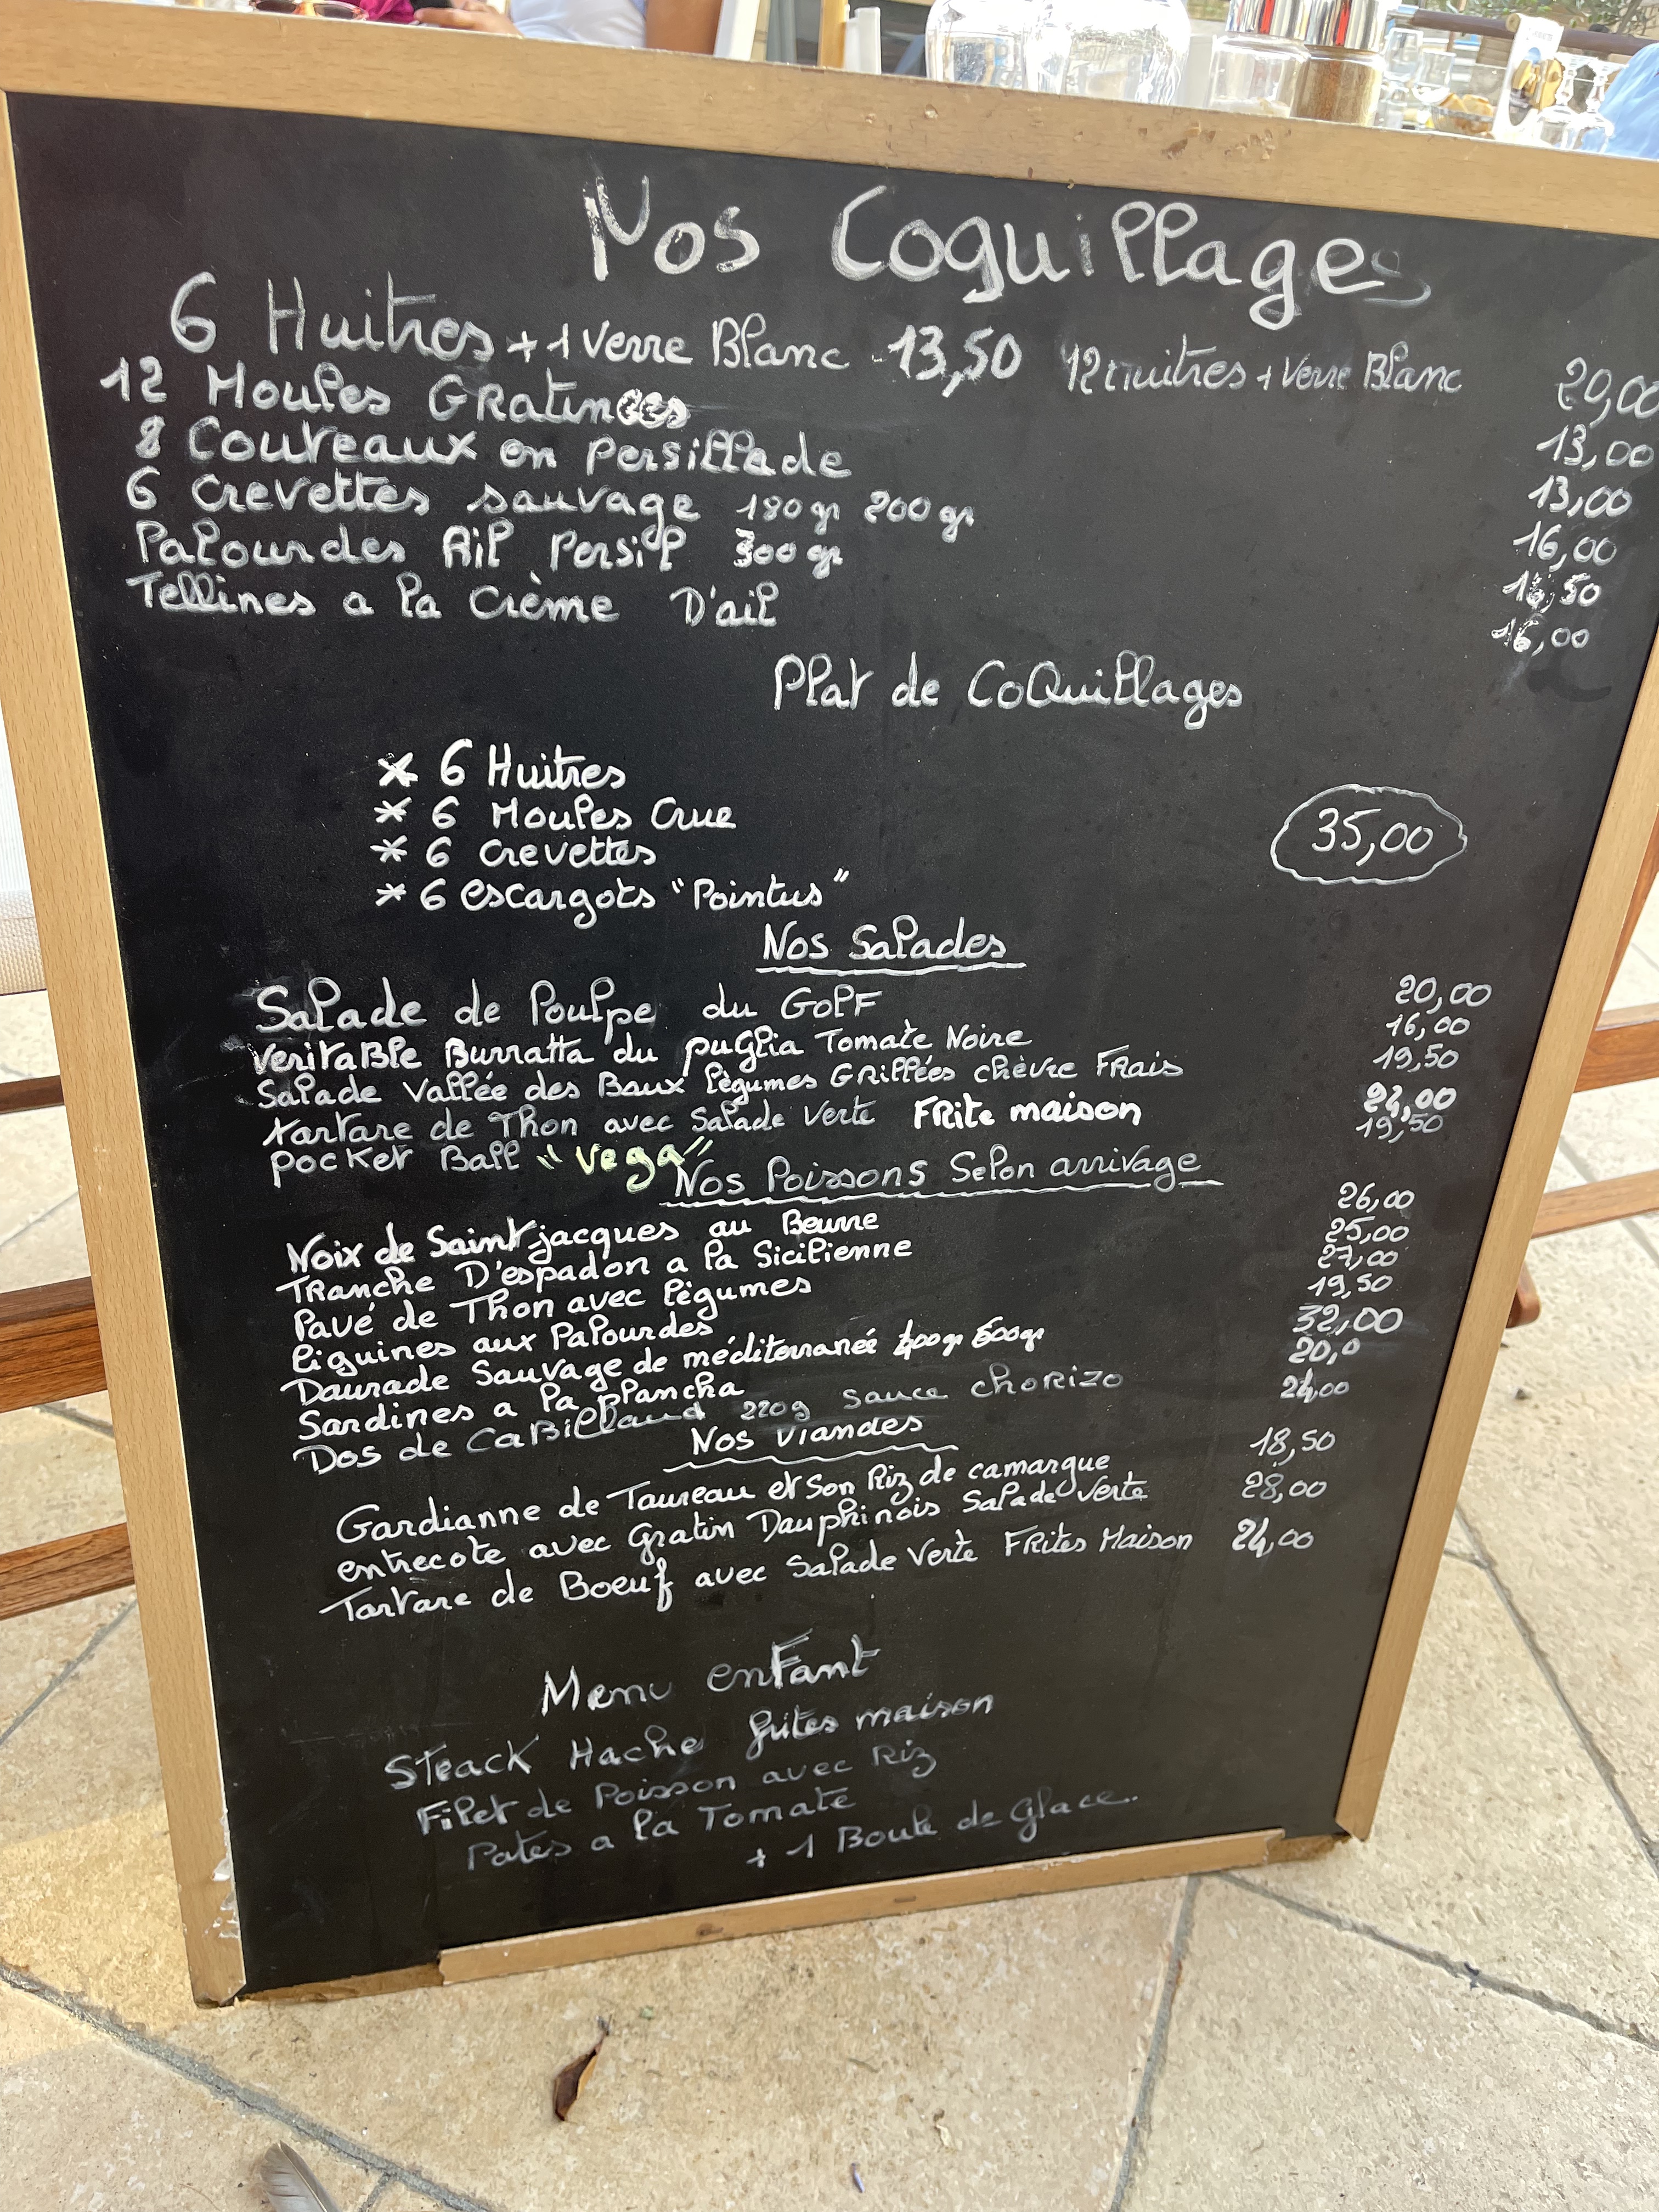 Nos Coquillages
6 Huitres + 1 verre Blanc 13,50 12 Huitres + Verre Blanc 20,00
12 Moules Gratinees 13,00
8 Couteaux en persillade 13,00
6 Crevettes sauvage 180 gr 200 gr 16,00
Palourdes Ail Persil 300 gr 16,50
Tellines a la Crème D'ail 16,00
Plat de CoQuillages
* 6 Huitres
* 6 Moules Crue
* 6 Crevettes
* 6 escargots "Pointus"
35,00
Nos Salades
Salade de Poulpe du GolF 20,00
VeritaBle Burratta du puGlia Tomate Noire 16,00
Salade Vallée des Baux légumes Grillées chèvre Frais 19,50
tartare de Thon avec Salade Verte FRite maison ,00
pocket Ball "Vega" 19,50
Nos Poissons Selon arrivage
Noix de Saint-jacques au Beurre 26,00
TRanche D'espadon a la Sicilienne 25,00
Pavé de Thon avec légumes 27,00
liguines aux Palourdes 19,50
Daurade Sauvage de méditerranée 400gr 600gr 32,00
Sardines a la Plancha 20,0
Dos de CaBillaud 220g sauce choRizo 24,00
Nos Viandes
Gardianne de Taureau et Son Riz de camargue 18,50
entrecote avec Gratin Dauphinois Salade Verte 28,00
Tartare de Boeuf avec Salade Verte FRites Maison 24,00
Menu enFant
STeack Hache frites maison
Filet de Poisson avec Riz
Pates a la Tomate
+ 1 Boule de Glace.